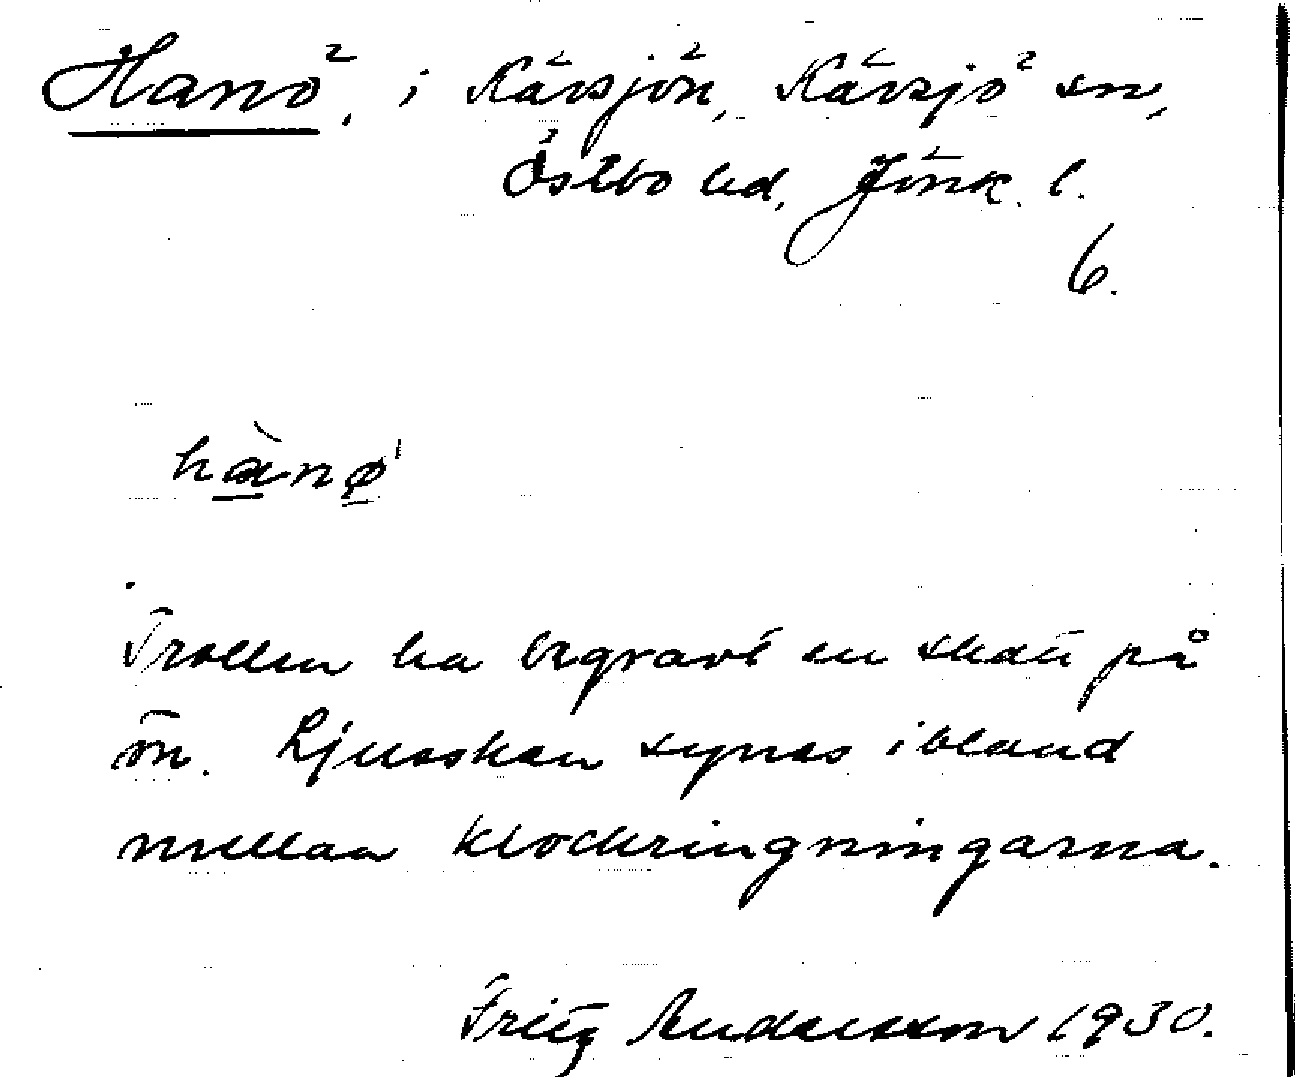 Hanö, i Kävsjön, Kävsjö sn,
Östbo hd, Jönk. l.
6.
hànø
Trollen ha begravt en skatt på
ön. Ljussken synas ibland
mellan klockringningarna.
Fritz Andersson 1930.